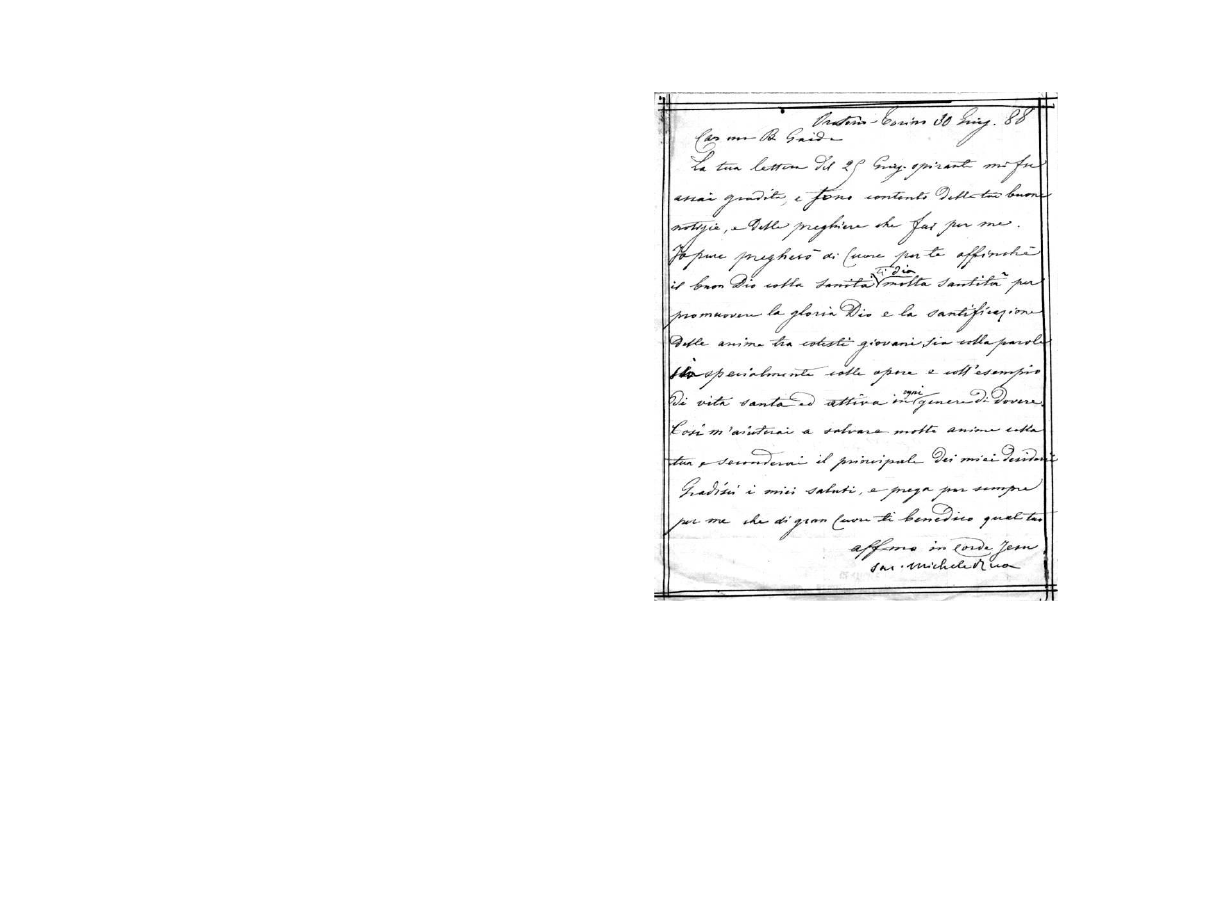 Oratorio-Torino 30 Giug. 88
Car mo D. Guido
La tua lettera del 25 Giug. spirante mi fu
assai gradita, e sono contento delle tue buone
notizie, e delle preghiere che fai per me.
Io pure pregherò di Cuore per te affinchè
il buon Dio colla sanità ti dia molta santità per
promuovere la gloria Dio e la santificazione
delle anime tra cotesti giovani, sia colla parola
sia specialmente colle opere e coll'esempio
di vita santa ed attiva in ogni genere di dovere.
Così m'aiuterai a salvare molte anime colla
tua e seconderai il principale dei miei desideri
Gradisci i miei saluti, e prega per sempre
per me che di gran Cuore ti benedico qual tuo
affmo in Corde Jesu
Sac. Michele Rua